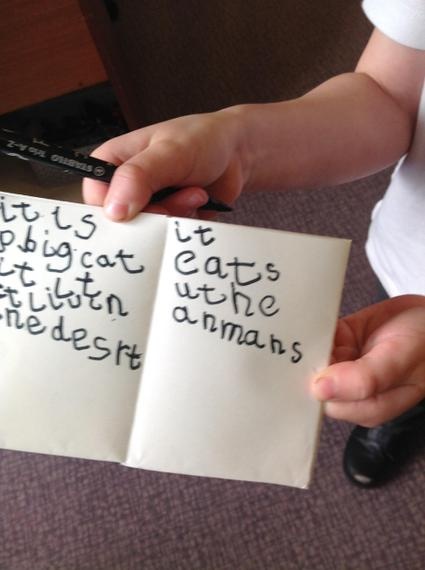 STABILO Trio A-Z
it is
big cat
it
desrt
it
eats
uthe
anmans